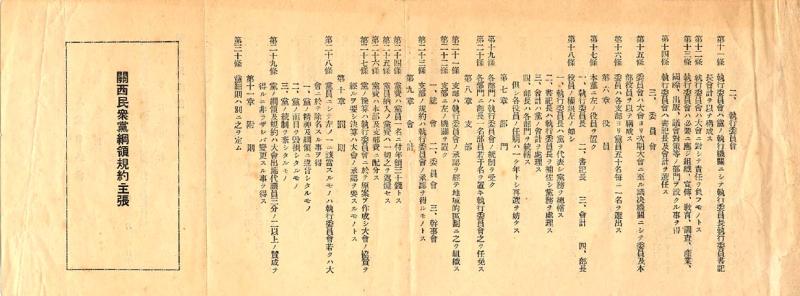 二、執行委員會
第十一條 執行委員會ハ黨ノ執行機關ニシテ執行委員長執行委員書記
長會計ヲ以テ構成ス
第十二條 執行委員會ハ大會ニ對シテ責任ヲ負フモノトス
第十三條 執行委員會ハ必要ニ應ジ組織、宣傳、教育、調査、産業、
國際、出版、議會對策等ノ部門ヲ設クル事ヲ得
第十四條 執行委員會ハ書記長及會計ヲ選任ス
三、委員會
第十五條 委員會ハ大會ヨリ次期大會ニ至ル議決機關ニシテ委員及本
部役員ヲ以テ構成ス
第十六條 委員ハ各支部ヨリ黨員五十名毎ニ一名ヲ選出ス
第六章 役員
第十七條 本黨ニ左ノ役員ヲ置ク
一、執行委員長 二、書記長 三、會計 四、部長
第十八條 役員ノ權限左ノ如シ
一、執行委員長ハ黨ヲ代表シ黨務ヲ總轄ス
二、書記長ハ執行委員長ヲ補佐シ黨務ヲ處理ス
三、會計ハ黨ノ會計ヲ處理ス
四、部長ハ各部門ヲ統轄ス
但シ各役員ノ任期ハ一ケ年トシ再選ヲ妨ゲス
第七章 部門
第十九條 各部門ハ執行委員會ノ統制ヲ受ク
第二十條 各部門ニ部長一名部員若干名ヲ置キ執行委員會之ヲ任免ス
第八章 支部
第二十一條 支部ハ執行委員會ノ承認ヲ經テ地域的區劃ニ之ヲ組織ス
第二十二條 支部ニ左ノ機關ヲ置ク
一、總會 二、委員會 三、幹事會
第二十三條 支部ノ規約ハ執行委員會ノ承認ヲ得ルモノトス
第九章 會計
第二十四條 黨費ハ黨員一名ニ付年額三十錢トス
第二十五條 黨員納入ノ黨費ハ一切之ヲ返還セス
第二十六條 黨費ハ本部及支部費ニ配分ス
第二十七條 黨ノ豫算ハ執行委員會ニ於テ原案ヲ作成シ大會ノ協賛ヲ
經ルヲ要シ決算ハ大會ノ承認ヲ要スルモノトス
第十章 罰則
第二十八條 黨員ニシテ左ノ一ニ該當スルモノハ執行委員會若クハ大
會ニ於テ除名スル事ヲ得
一、黨ノ精神及綱領ニ違背シタルモノ
二、黨ノ面目ヲ毀損シタルモノ
三、黨ノ統制ヲ紊シタルモノ
第二十九條 黨ノ綱領及規約ハ大會出席代議員三分ノ二以上ノ賛成ヲ
得ルニ非ラザレバ變更スル事ヲ得ス
第十一章 附則
第三十條 黨細則ハ別ニ之ヲ定ム
關西民衆黨綱領規約主張